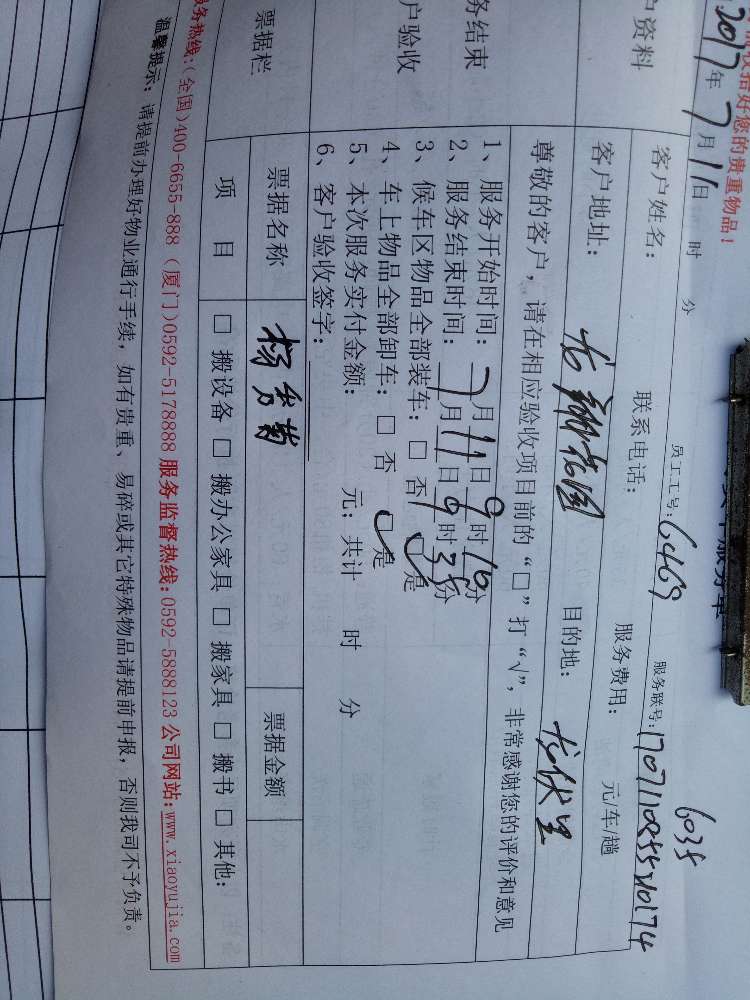 收拾好您的贵重物品！
2017年7月11日 时 分 员工工号：6469 6035
服务联号：170711085520174
户资料 客户姓名： 联系电话： 服务费用： 元/车/趟
客户地址： 龙翔花园 目的地： 龙伏里
务结束
户验收
尊敬的客户，请在相应验收项目前的“□”打“√”，非常感谢您的评价和意见
1、服务开始时间：7月11日9时16分
2、服务结束时间：7月11日9时35分
3、候车区物品全部装车：□否 □是
4、车上物品全部卸车：□否 □是
5、本次服务实付金额： 元；共计 时 分
6、客户验收签字：
票据栏 票据名称 杨秀菊 票据金额
项 目 □搬设备 □搬办公家具 □搬家具 □搬书 □其他：
服务热线：（全国）400-6655-888（厦门）0592-5178888 服务监督热线：0592-5888123 公司网站：www.xiaoyujia.com
温馨提示：请提前办理好物业通行手续，如有贵重、易碎或其它特殊物品请提前申报，否则我司不予负责。